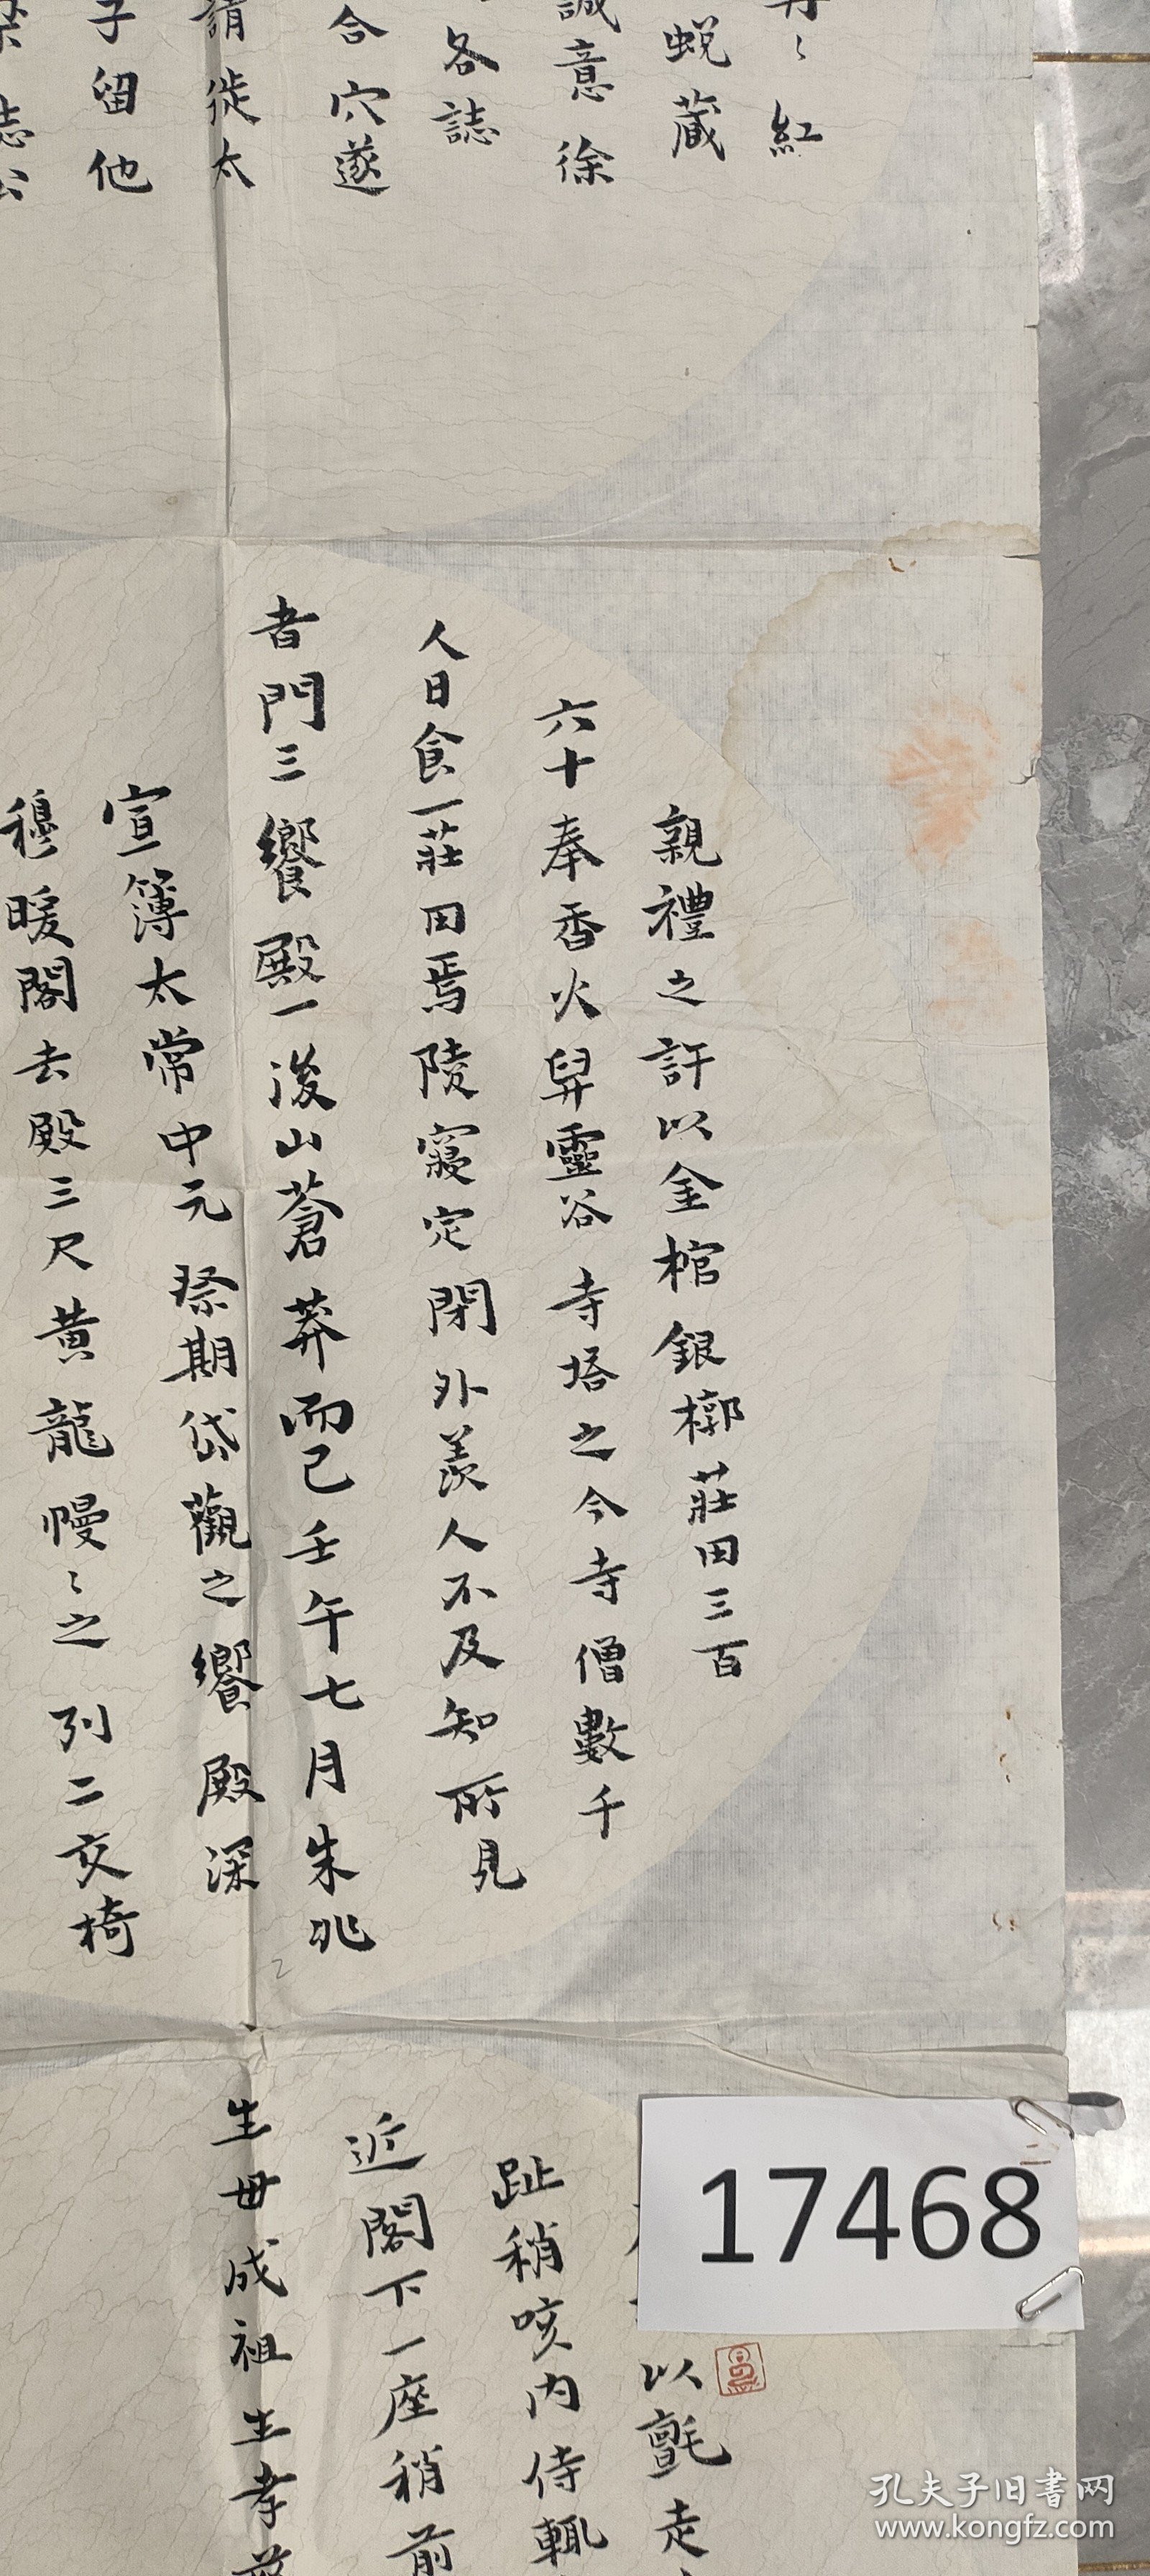 冉〻紅
蛻藏
誠意徐
各誌
合穴遂
請徙太
子留他
誌公
親禮之許以金棺銀槨莊田三百
六十奉香火舁靈谷寺塔之今寺僧數千
人日食一莊田焉陵寢定閉外羨人不及知所見
者門三饗殿一寖山蒼莽而已壬午七月朱兆
宣簿太常中元祭期岱觀之饗殿深
穆暖閣去殿三尺黃龍幔〻之列二交椅
以氈走
趾稍咳内侍輒
近閣下一座稍前
生毋成祖生孝
17468
孔夫子旧書网
www.kongfz.com